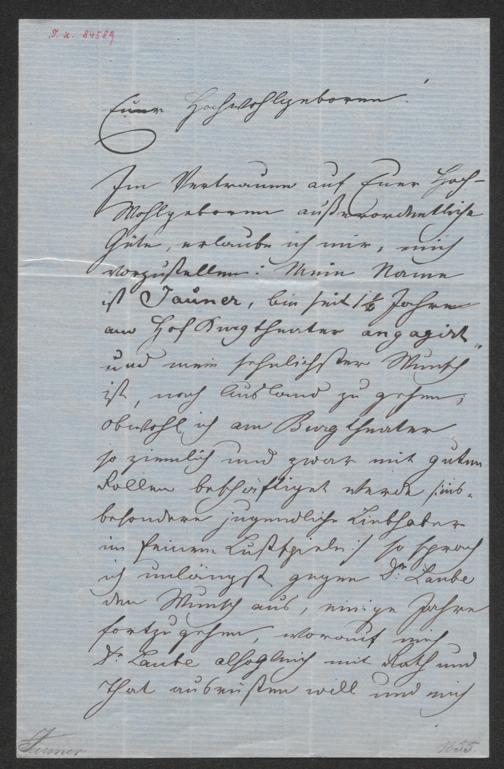 I. N. 84589
Euer Hochwohlgeboren!
Im Vertrauen auf Euer Hoch-
Wohlgeboren außerordentliche
Güte, erlaube ich mir, mich
vorzustellen: Mein Name
ist Tauner, bin seit 1½ Jahre
am Hof Burgtheater engagirt
und mein sehnlichster Wunsch
ist, nach Ausland zu gehen,
obwohl ich am Burgtheater
so ziemlich und zwar mit guten
Rollen beschäftiget werde /: ins-
besondere jugendliche Liebhaber
im feinen Lustspiele :/ so sprach
ich unlängst gegen Dr. Laube
den Wunsch aus, einige Jahre
fortzugehen, worauf mich
Dr. Laube alsogleich mit Rath und
That ausrüsten will und mich